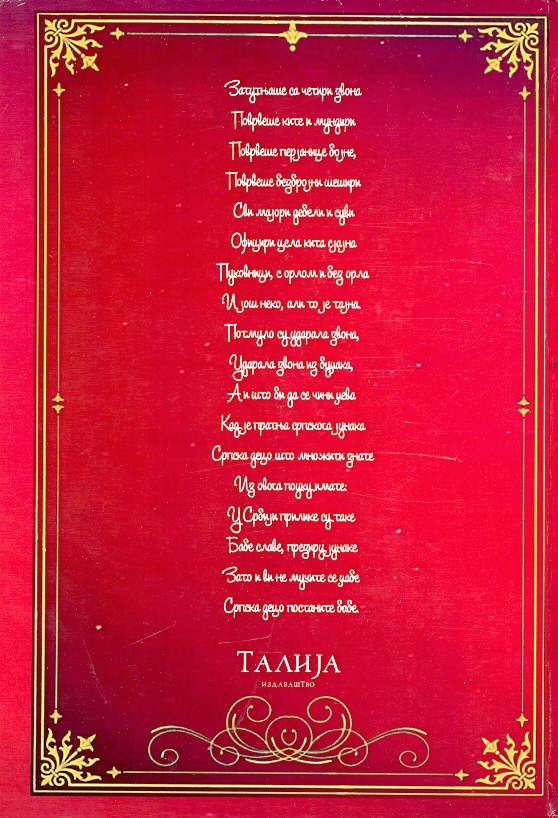 Затутњаше са четири звона
Поврвеше ките и мундири
Поврвеше перјанице бојне,
Поврвеше безбројни шешири
Сви мајори дебели и суви
Официри цела кита сјајна
Пуковници, с орлом и без орла
И још неко, али то је тајна.
Потмуло су ударала звона,
Ударала звона из буџака,
А и што би да се чини џева
Кад је пратња српскога јунака
Српска децо што множити знате
Из овога поуку имате:
У Србији прилике су таке
Бабе славе, презиру јунаке
Зато и ви не мучите се џабе
Српска децо постаните бабе.
ТАЛИЈА
ИЗДАВАШТВО